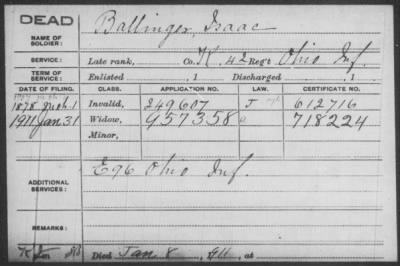 DEAD
NAME OF SOLDIER: Ballinger, Isaac
SERVICE: Late rank, Co. K. 42 Reg't Ohio Inf.
TERM OF SERVICE: Enlisted , 1 Discharged , 1
DATE OF FILING. CLASS. APPLICATION NO. LAW. CERTIFICATE NO.
1878 Invalid, 249607 J 612716
1911 Jan 31 Widow, 957358 718224
Minor,
ADDITIONAL SERVICES: E 96 Ohio Inf.
REMARKS:
Died Jan 8, 1911, at